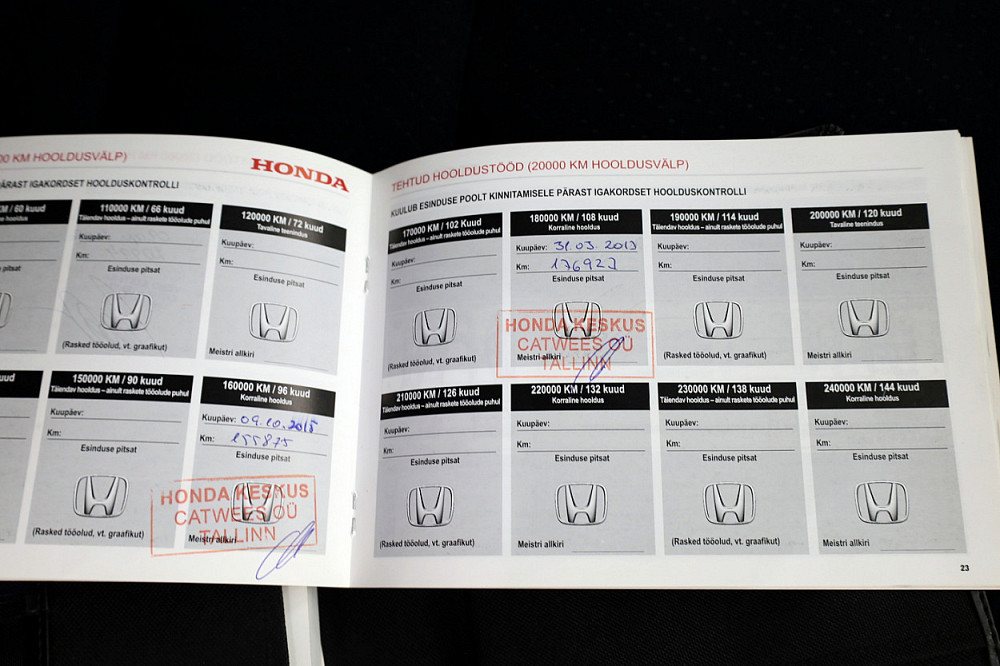 00 KM HOOLDUSVÄLP)
HONDA
PÄRAST IGAKORDSET HOOLDUSKONTROLLI
KM / 60 kuud
110000 KM / 66 kuud
Täiendav hooldus – ainult raskete tööolude puhul
Kuupäev:
Km:
Esinduse pitsat
(Rasked tööolud, vt. graafikut)
120000 KM / 72 kuud
Tavaline teenindus
Kuupäev:
Km:
Esinduse pitsat
Meistri allkiri
150000 KM / 90 kuud
Täiendav hooldus – ainult raskete tööolude puhul
Kuupäev:
Km:
Esinduse pitsat
(Rasked tööolud, vt. graafikut)
160000 KM / 96 kuud
Korraline hooldus
Kuupäev: 09.10.2015
Km: 155875
Esinduse pitsat
HONDA KESKUS
CATWEES OÜ
TALLINN
Meistri allkiri
TEHTUD HOOLDUSTÖÖD (20000 KM HOOLDUSVÄLP)
KUULUB ESINDUSE POOLT KINNITAMISELE PÄRAST IGAKORDSET HOOLDUSKONTROLLI
170000 KM / 102 Kuud
Täiendav hooldus – ainult raskete tööolude puhul
Kuupäev:
Km:
Esinduse pitsat
(Rasked tööolud, vt. graafikut)
180000 KM / 108 kuud
Korraline hooldus
Kuupäev: 31.03.2019
Km:
Esinduse pitsat
HONDA KESKUS
CATWEES OÜ
TALLINN
Meistri allkiri
190000 KM / 114 kuud
Täiendav hooldus – ainult raskete tööolude puhul
Kuupäev:
Km:
Esinduse pitsat
(Rasked tööolud, vt. graafikut)
200000 KM / 120 kuud
Tavaline teenindus
Kuupäev:
Km:
Esinduse pitsat
Meistri allkiri
210000 KM / 126 kuud
Täiendav hooldus – ainult raskete tööolude puhul
Kuupäev:
Km:
Esinduse pitsat
(Rasked tööolud, vt. graafikut)
220000 KM / 132 kuud
Korraline hooldus
Kuupäev:
Km:
Esinduse pitsat
Meistri allkiri
230000 KM / 138 kuud
Täiendav hooldus – ainult raskete tööolude puhul
Kuupäev:
Km:
Esinduse pitsat
(Rasked tööolud, vt. graafikut)
240000 KM / 144 kuud
Korraline hooldus
Kuupäev:
Km:
Esinduse pitsat
Meistri allkiri
23